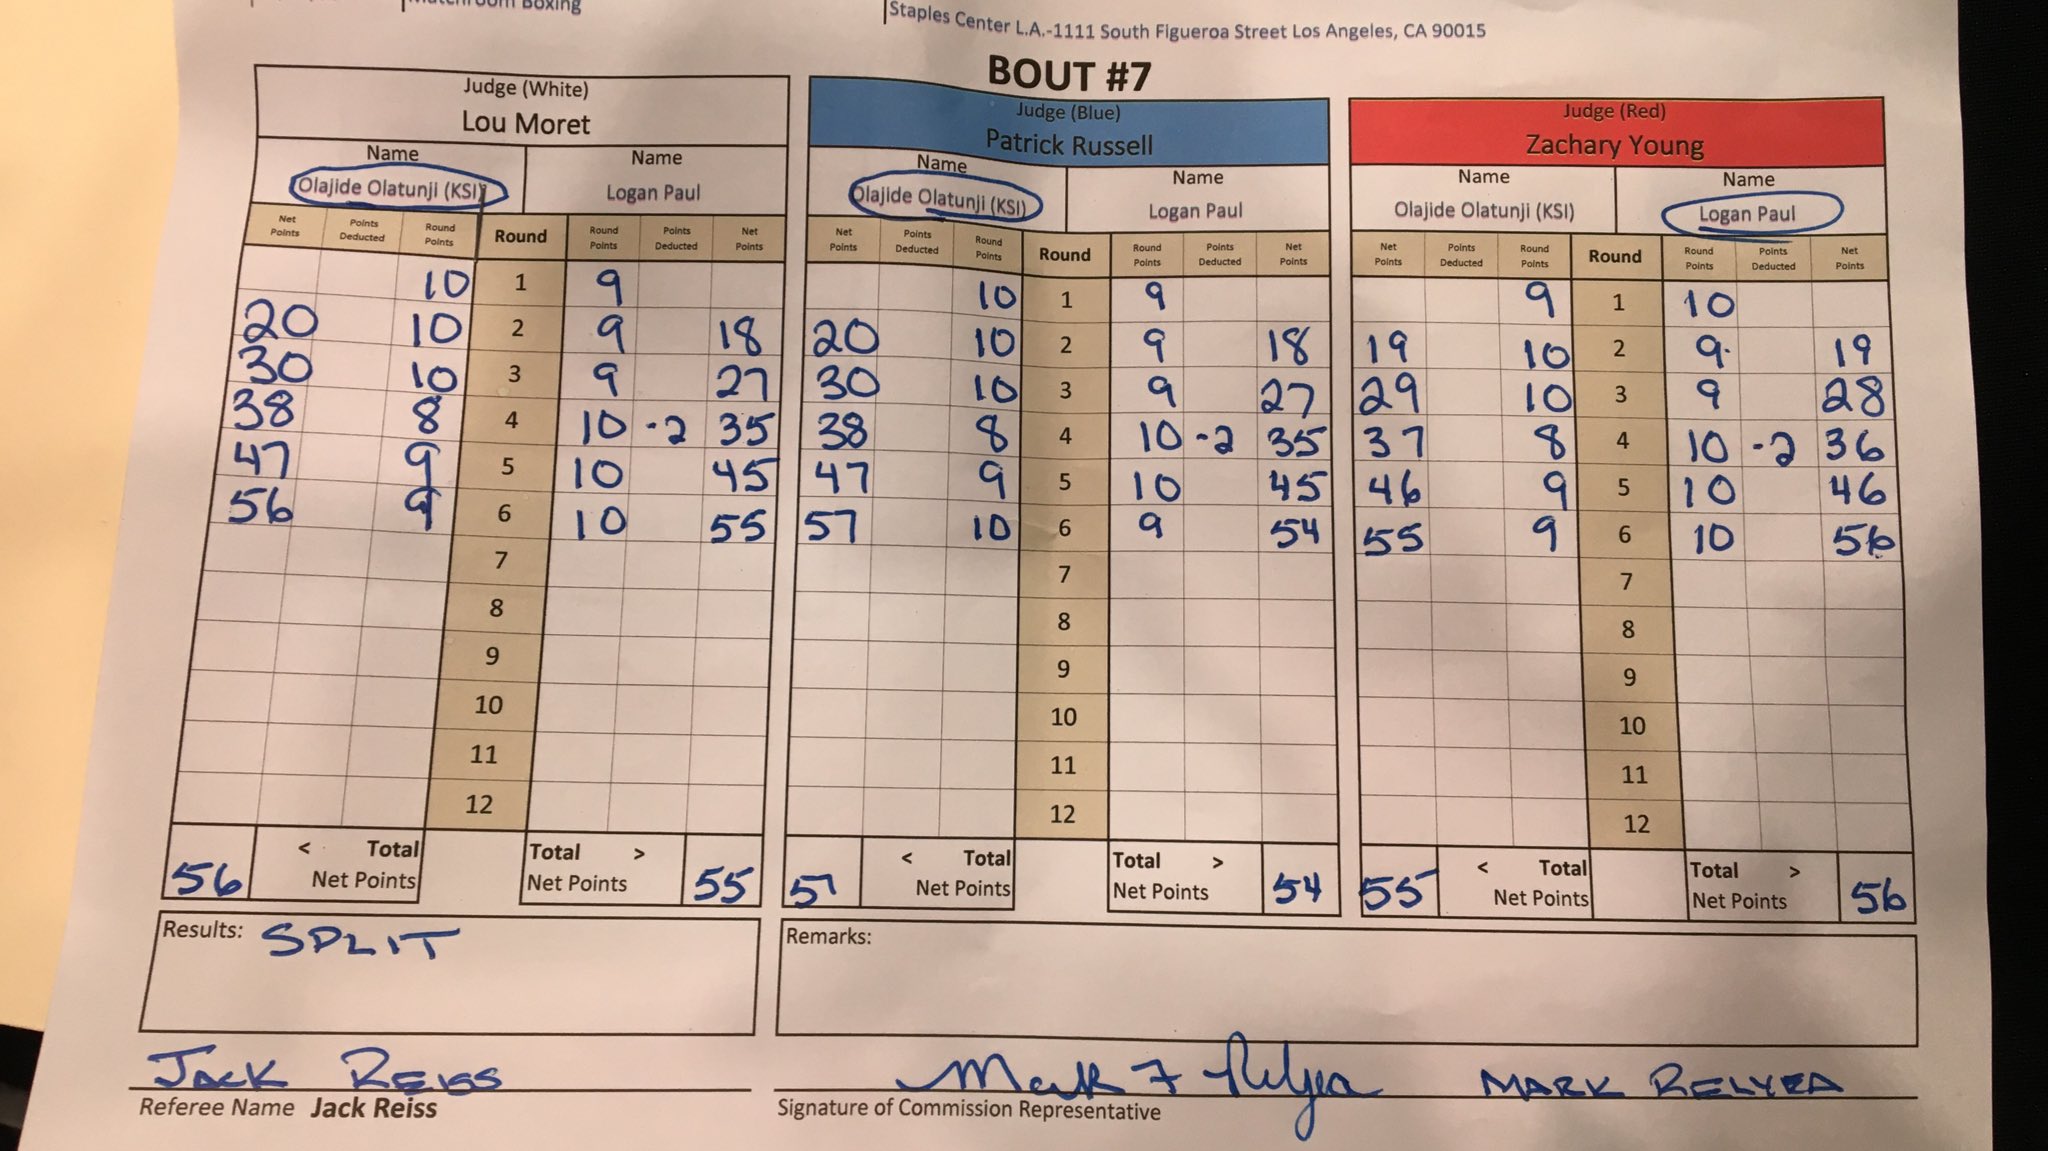 Matchroom Boxing
Staples Center L.A.-1111 South Figueroa Street Los Angeles, CA 90015
BOUT #7
Judge (White) Judge (Blue) Judge (Red)
Lou Moret Patrick Russell Zachary Young
Name Name Name Name Name Name
Olajide Olatunji (KSI) Logan Paul Olajide Olatunji (KSI) Logan Paul Olajide Olatunji (KSI) Logan Paul
Net Points Points Deducted Round Points Round Round Points Points Deducted Net Points Net Points Points Deducted Round Points Round Round Points Points Deducted Net Points Net Points Points Deducted Round Points Round Round Points Points Deducted Net Points
10 1 9 10 1 9 9 1 10
20 10 2 9 18 20 10 2 9 18 19 10 2 9 19
30 10 3 9 27 30 10 3 9 27 29 10 3 9 28
38 8 4 10 -2 35 38 8 4 10 -2 35 37 8 4 10 -2 36
47 9 5 10 45 47 9 5 10 45 46 9 5 10 46
56 9 6 10 55 57 10 6 9 54 55 9 6 10 56
7 7 7
8 8 8
9 9 9
10 10 10
11 11 11
12 12 12
56 < Total Net Points Total > Net Points 55 57 < Total Net Points Total > Net Points 54 55 < Total Net Points Total > Net Points 56
Results: SPLIT Remarks:
JACK REISS Mark F Relyea MARK RELYEA
Referee Name Jack Reiss Signature of Commission Representative